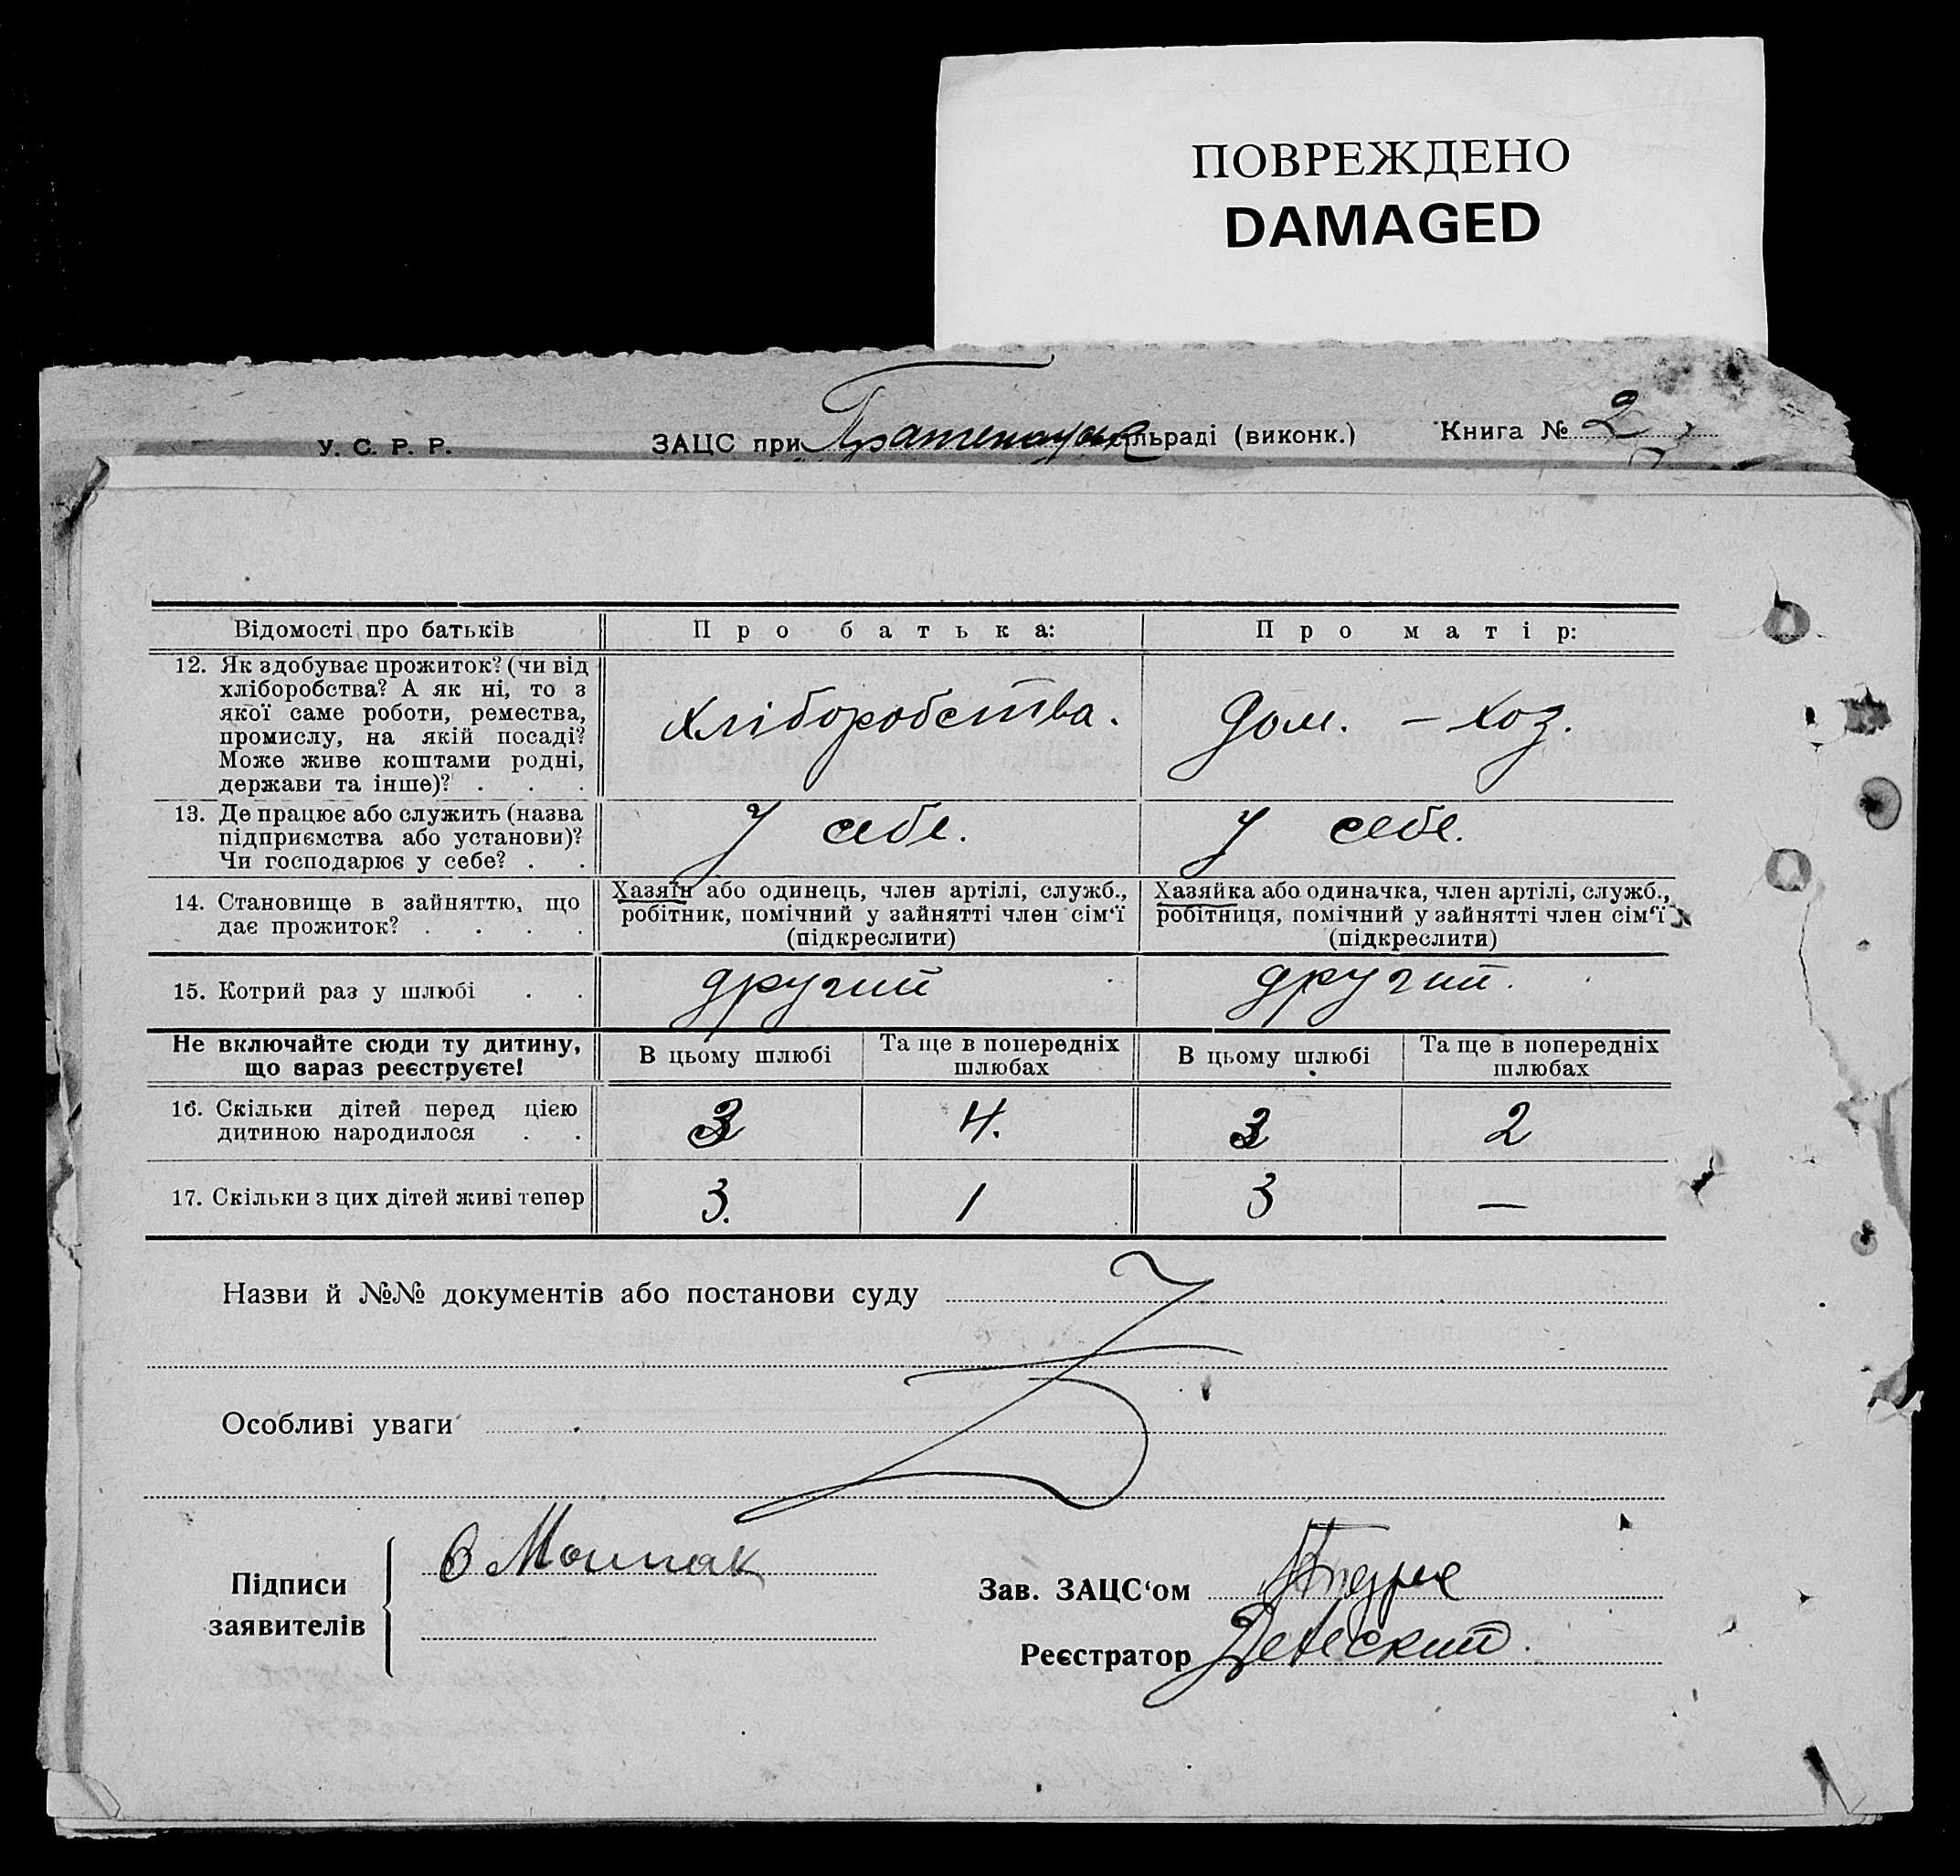 ПОВРЕЖДЕНО
DAMAGED
У. С. Р. Р. ЗАЦС при сільраді (виконк.) Книга № 2
Відомості про батьків Про батька: Про матір:
12. Як здобуває прожиток? (чи від
хліборобства? А як ні, то з
якої саме роботи, ремества,
промислу, на якій посаді?
Може живе коштами родні,
держави та інше)? . . .
хліборобства. Дом. – хоз.
13. Де працює або служить (назва
підприємства або установи)?
Чи господарює у себе? . .
У себе. У себе.
14. Становище в зайняттю, що
дає прожиток? . . . .
Хазяїн або одинець, член артілі, служб.,
робітник, помічний у зайнятті член сім‘ї
(підкреслити)
Хазяйка або одиначка, член артілі, служб.,
робітниця, помічний у зайнятті член сім‘ї
(підкреслити)
15. Котрий раз у шлюбі . . другий другий.
Не включайте сюди ту дитину,
що зараз реєструєте!
В цьому шлюбі Та ще в попередніх
шлюбах
В цьому шлюбі Та ще в попередніх
шлюбах
16. Скільки дітей перед цією
дитиною народилося . .
3 4. 3 2
17. Скільки з цих дітей живі тепер 3. 1 3 —
Назви й №№ документів або постанови суду
Особливі уваги
Підписи
заявителів
Зав. ЗАЦС‘ом
Реєстратор